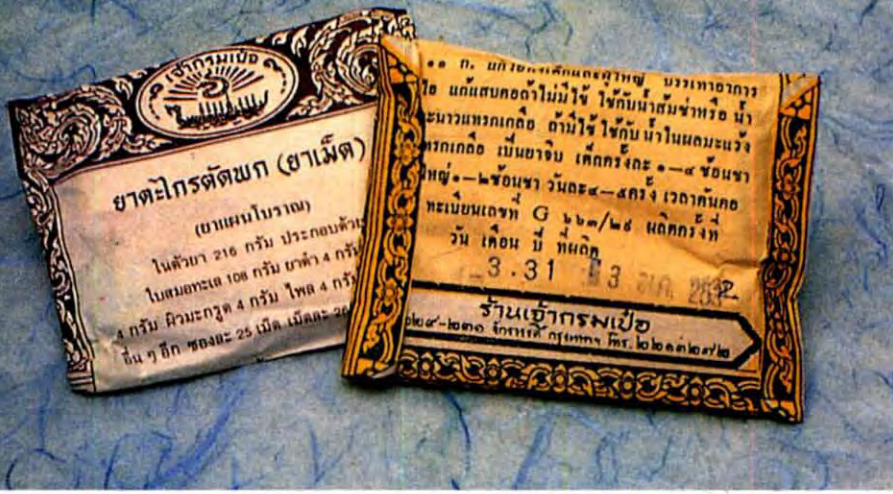 เจ้ากรมเป๋อ
ยาตะไกรตัดพก (ยาเม็ด)
(ยาแผนโบราณ)
ในตัวยา 216 กรัม ประกอบด้วย
ใบสมอทะเล 108 กรัม ยาดำ 4 กรัม
4 กรัม ผิวมะกรูด 4 กรัม ไพล 4 กรัม
อื่น ๆ อีก ซองละ 25 เม็ด เม็ดละ
บรรเทาอาการ
ไอ แก้แสบคอถ้าไม่มีไข้ ใช้กับน้ำส้มซ่าหรือ น้ำ
มะนาวแทรกเกลือ ถ้ามีไข้ ใช้กับ น้ำในผลมะแว้ง
แทรกเกลือ เป็นยาจิบ เด็กครั้งละ ๑-๔ ช้อนชา
ใหญ่ ๑-๒ ช้อนชา วันละ ๔-๕ ครั้ง เวลาคันคอ
ทะเบียนเลขที่ G ๖๖๓/๒๘ ผลิตครั้งที่
วัน เดือน ปี ที่ผลิต
3.31
ร้านเจ้ากรมเป๋อ
๒๒๙-๒๓๑ จักรวรรดิ์ กรุงเทพฯ โทร. ๒๒๑๓๒๙๒